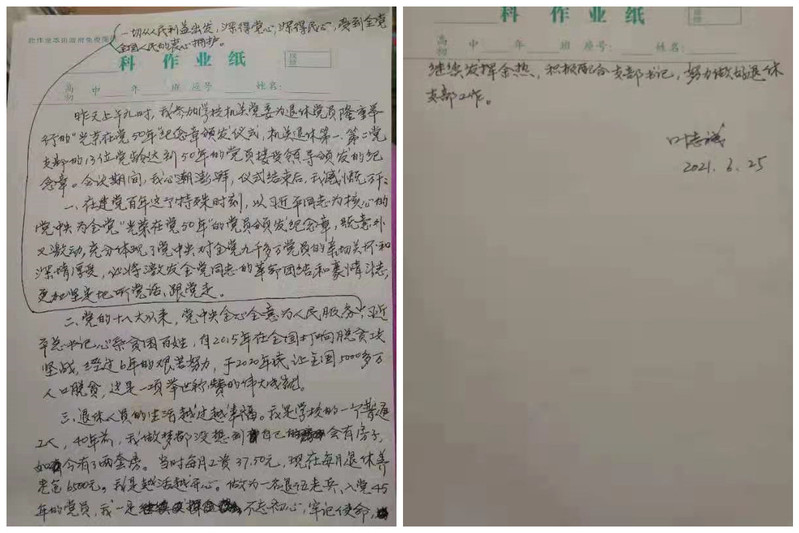 一切从人民利益出发，深得党心，深得民心，受到全党
全国人民的衷心拥护。
科 作 业 纸
高 中 年 班 座号： 姓名：
昨天上午九时，我参加学校机关党委为退休党员隆重举
行的“光荣在党50年”纪念章颁发仪式，机关退休第一、第二党
支部的13位党龄达到50年的党员接受领导颁发的纪
念章。会议期间，我心潮澎湃，仪式结束后，我感慨万千：
一、在建党百年这个特殊时刻，以习近平同志为核心的
党中央为全党“光荣在党50年”的党员颁发纪念章，既意外
又激动，充分体现了党中央对全党九千多万党员的亲切关怀和
深情厚爱，必将激发全党同志的革命团结和豪情斗志，
更加坚定地听党话、跟党走。
二、党的十八大以来，党中央全心全意为人民服务，习近
平总书记心系贫困百姓，自2015年在全国打响脱贫攻
坚战，经过6年的艰苦努力，于2020年底让全国5000多万
人口脱贫，这是一项举世称赞的伟大成就。
三、退休人员的生活越过越幸福。我是学校的一个普通
工人，40年前，我做梦都没想到自己会有房子，
如今有了两套房。当时每月工资37.50元，现在每月退休养
老金6500元。我是越活越开心。做为一名退伍老兵、入党45
年的党员，我一定不忘初心，牢记使命，
科 作 业 纸
高 中 年 班 座号： 姓名：
继续发挥余热，积极配合支部书记，努力做好退休
支部工作。
2021.6.25